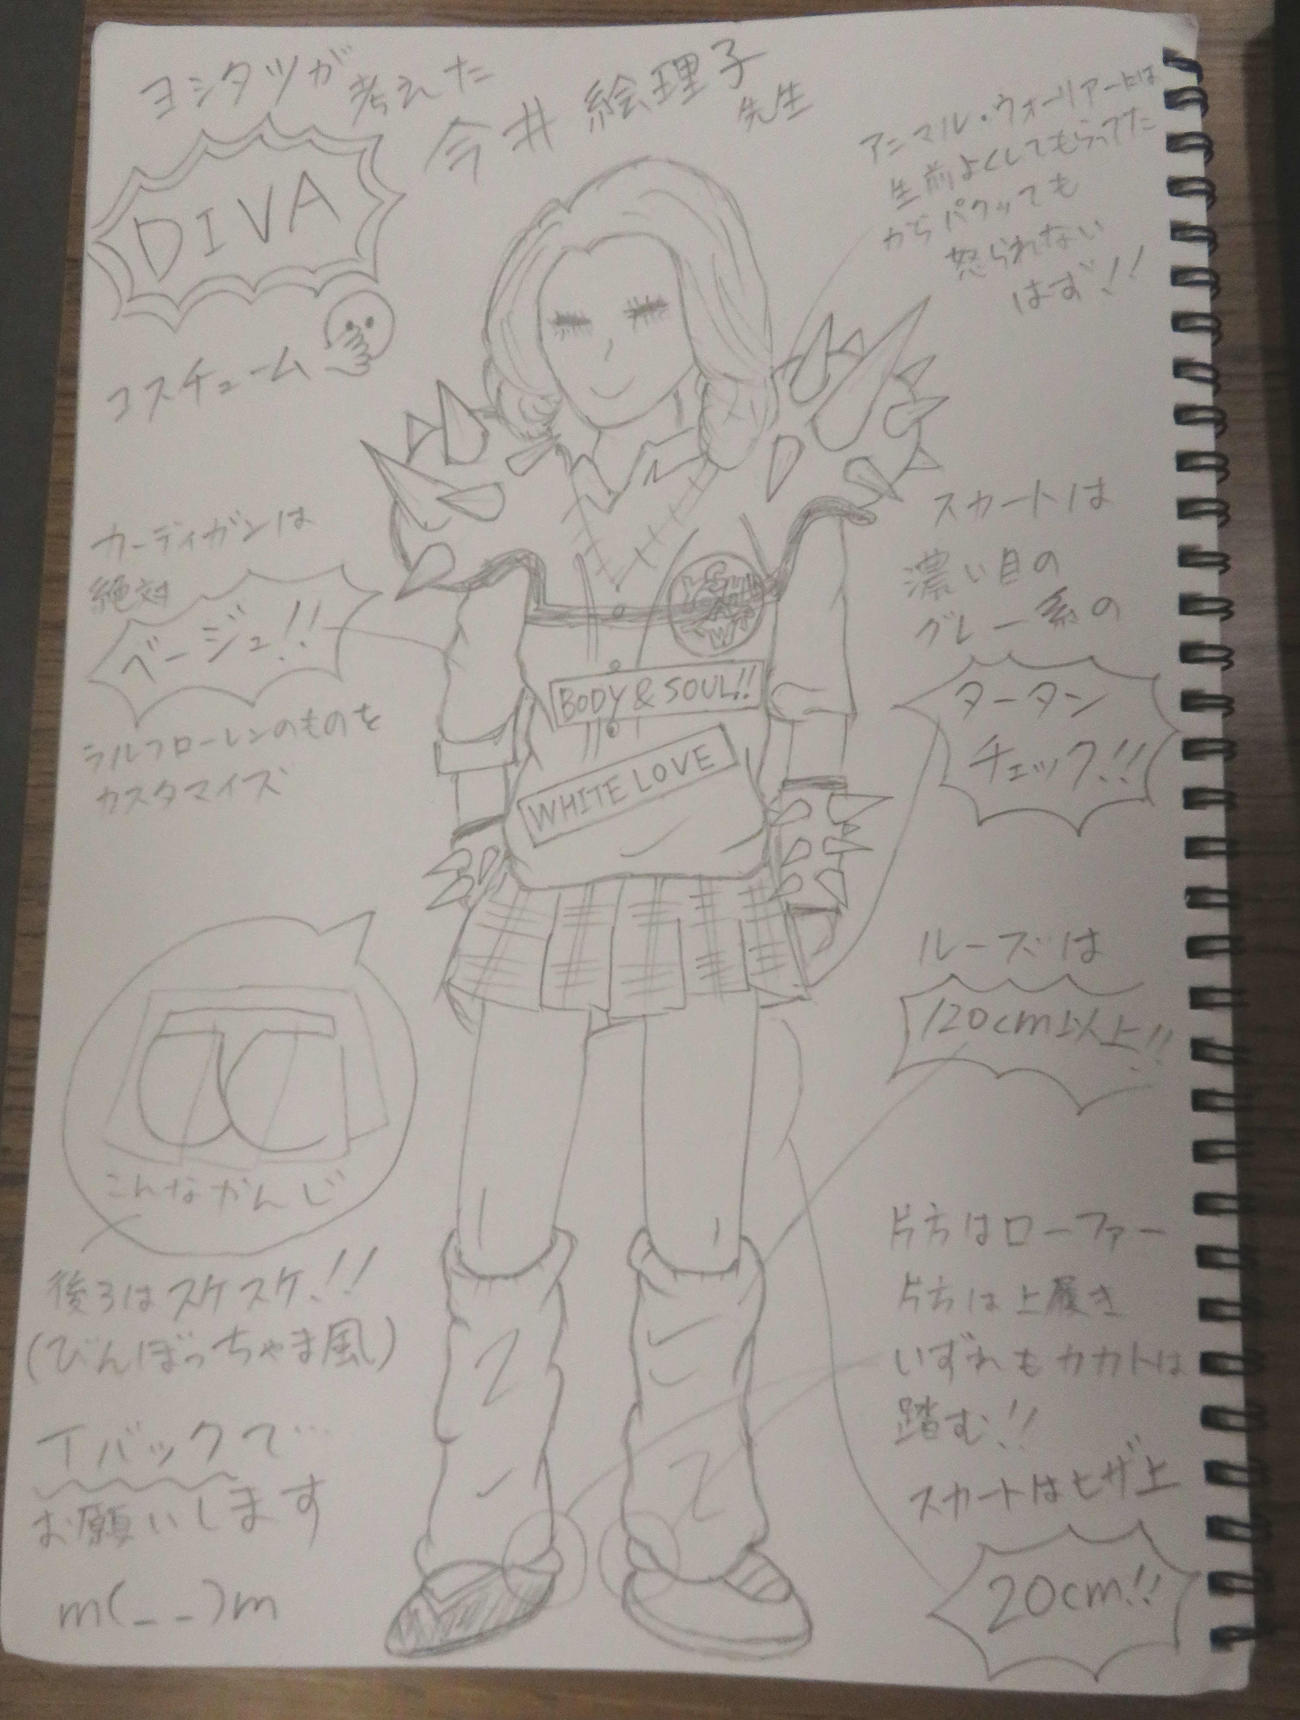 ヨシタツが
考えた
今井 絵理子
先生
DIVA
コスチューム
アニマル・ウォーリアー上は
生前よくしてもらってた
からパクッても
怒られない
はず!!
カーディガンは
絶対
ベージュ!!
ラルフローレンのものを
カスタマイズ
スカートは
濃い目の
グレー系の
タータン
チェック!!
BODY & SOUL!!
WHITE LOVE
ルーズは
120cm以上!!
こんなかんじ
後ろはスケスケ!!
(びんぼっちゃま風)
Tバックで…
お願いします
m(_ _)m
片方はローファー
片方は上履き
いずれもカカトは
踏む!!
スカートはヒザ上
20cm!!